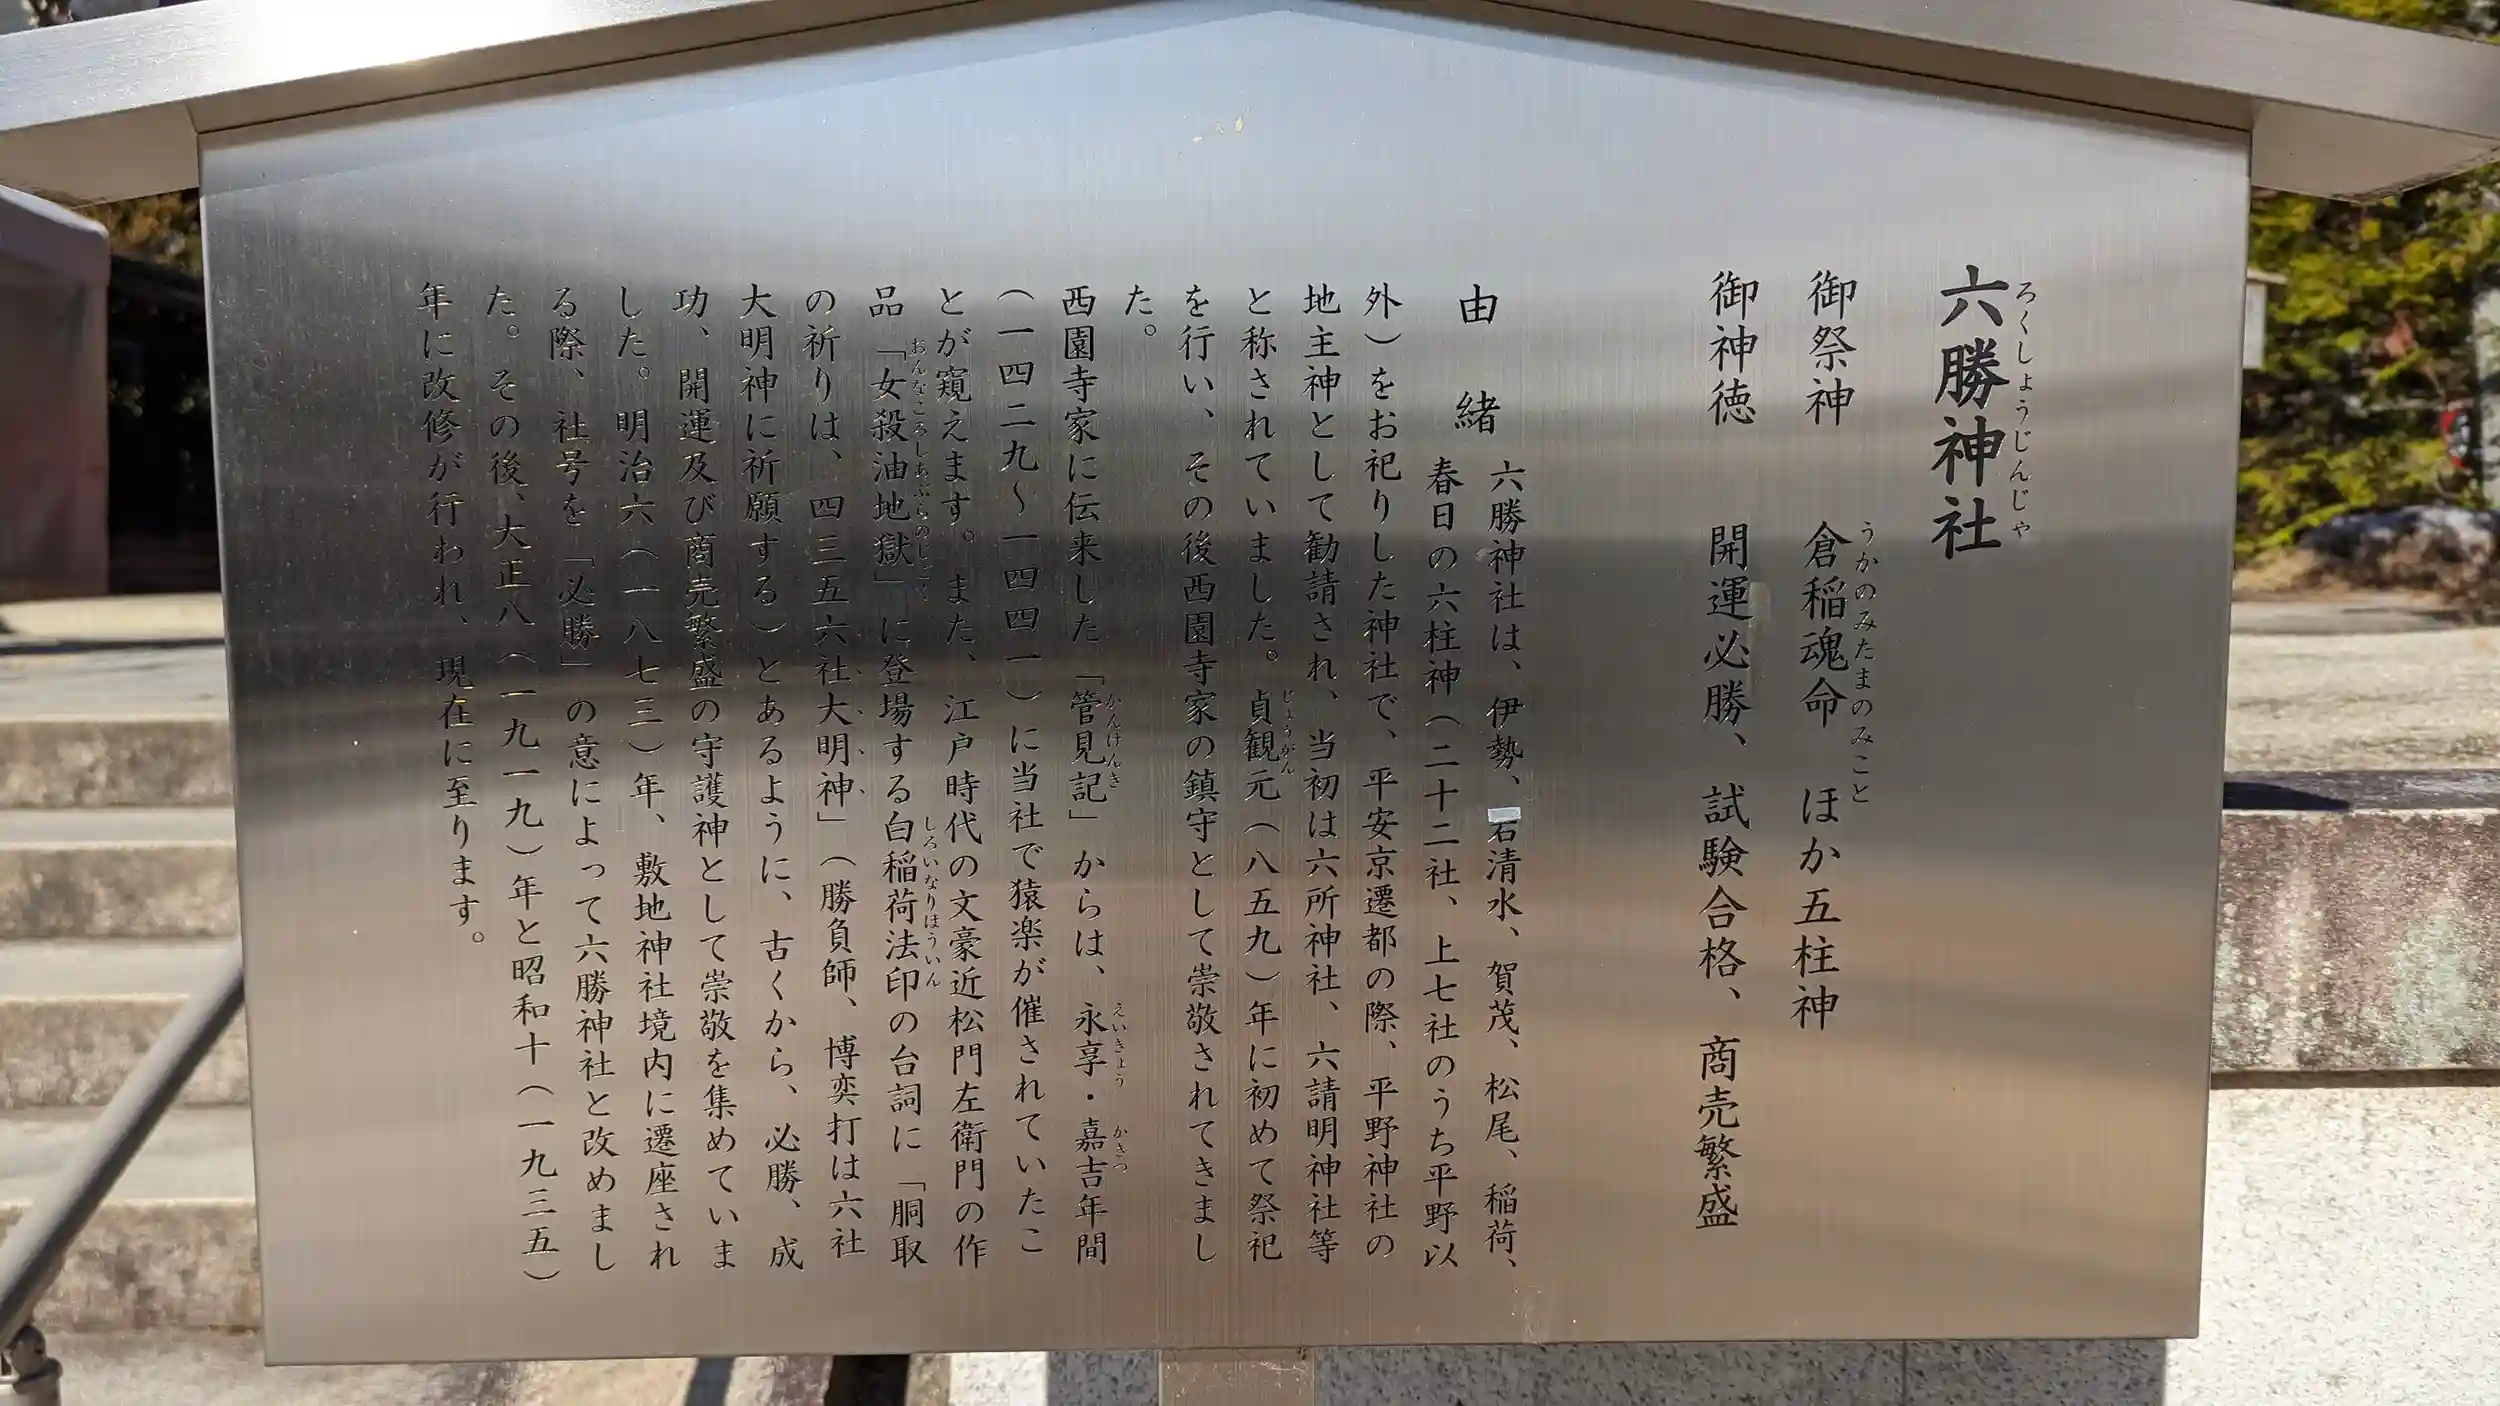 六勝神社
ろくしょうじんじゃ
御祭神 倉稲魂命 ほか五柱神
うかのみたまのみこと
御神徳 開運必勝、試験合格、商売繁盛
由緒
六勝神社は、伊勢、石清水、賀茂、松尾、稲荷、
春日の六柱神（二十二社、上七社のうち平野以
外）をお祀りした神社で、平安京遷都の際、平野神社の
地主神として勧請され、当初は六所神社、六請明神社等
と称されていました。貞観元（八五九）年に初めて祭祀
じょうがん
を行い、その後西園寺家の鎮守として崇敬されてきまし
た。
西園寺家に伝来した「管見記」からは、永享・嘉吉年間
かんけんき えいきょう かきつ
（一四二九～一四四一）に当社で猿楽が催されていたこ
とが窺えます。また、江戸時代の文豪近松門左衛門の作
品「女殺油地獄」に登場する白稲荷法印の台詞に「胴取
おんなころしあぶらのじごく しろいなりほういん
の祈りは、四三五六社大明神」（勝負師、博奕打は六社
大明神に祈願する）とあるように、古くから、必勝、成
功、開運及び商売繁盛の守護神として崇敬を集めていま
した。明治六（一八七三）年、敷地神社境内に遷座され
る際、社号を「必勝」の意によって六勝神社と改めまし
た。その後、大正八（一九一九）年と昭和十（一九三五）
年に改修が行われ、現在に至ります。